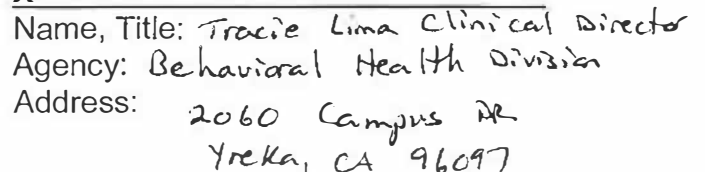 Name, Title: Tracie Lima Clinical Director
Agency: Behavioral Health Division
Address: 2060 Campus DR
Yreka, CA 96097